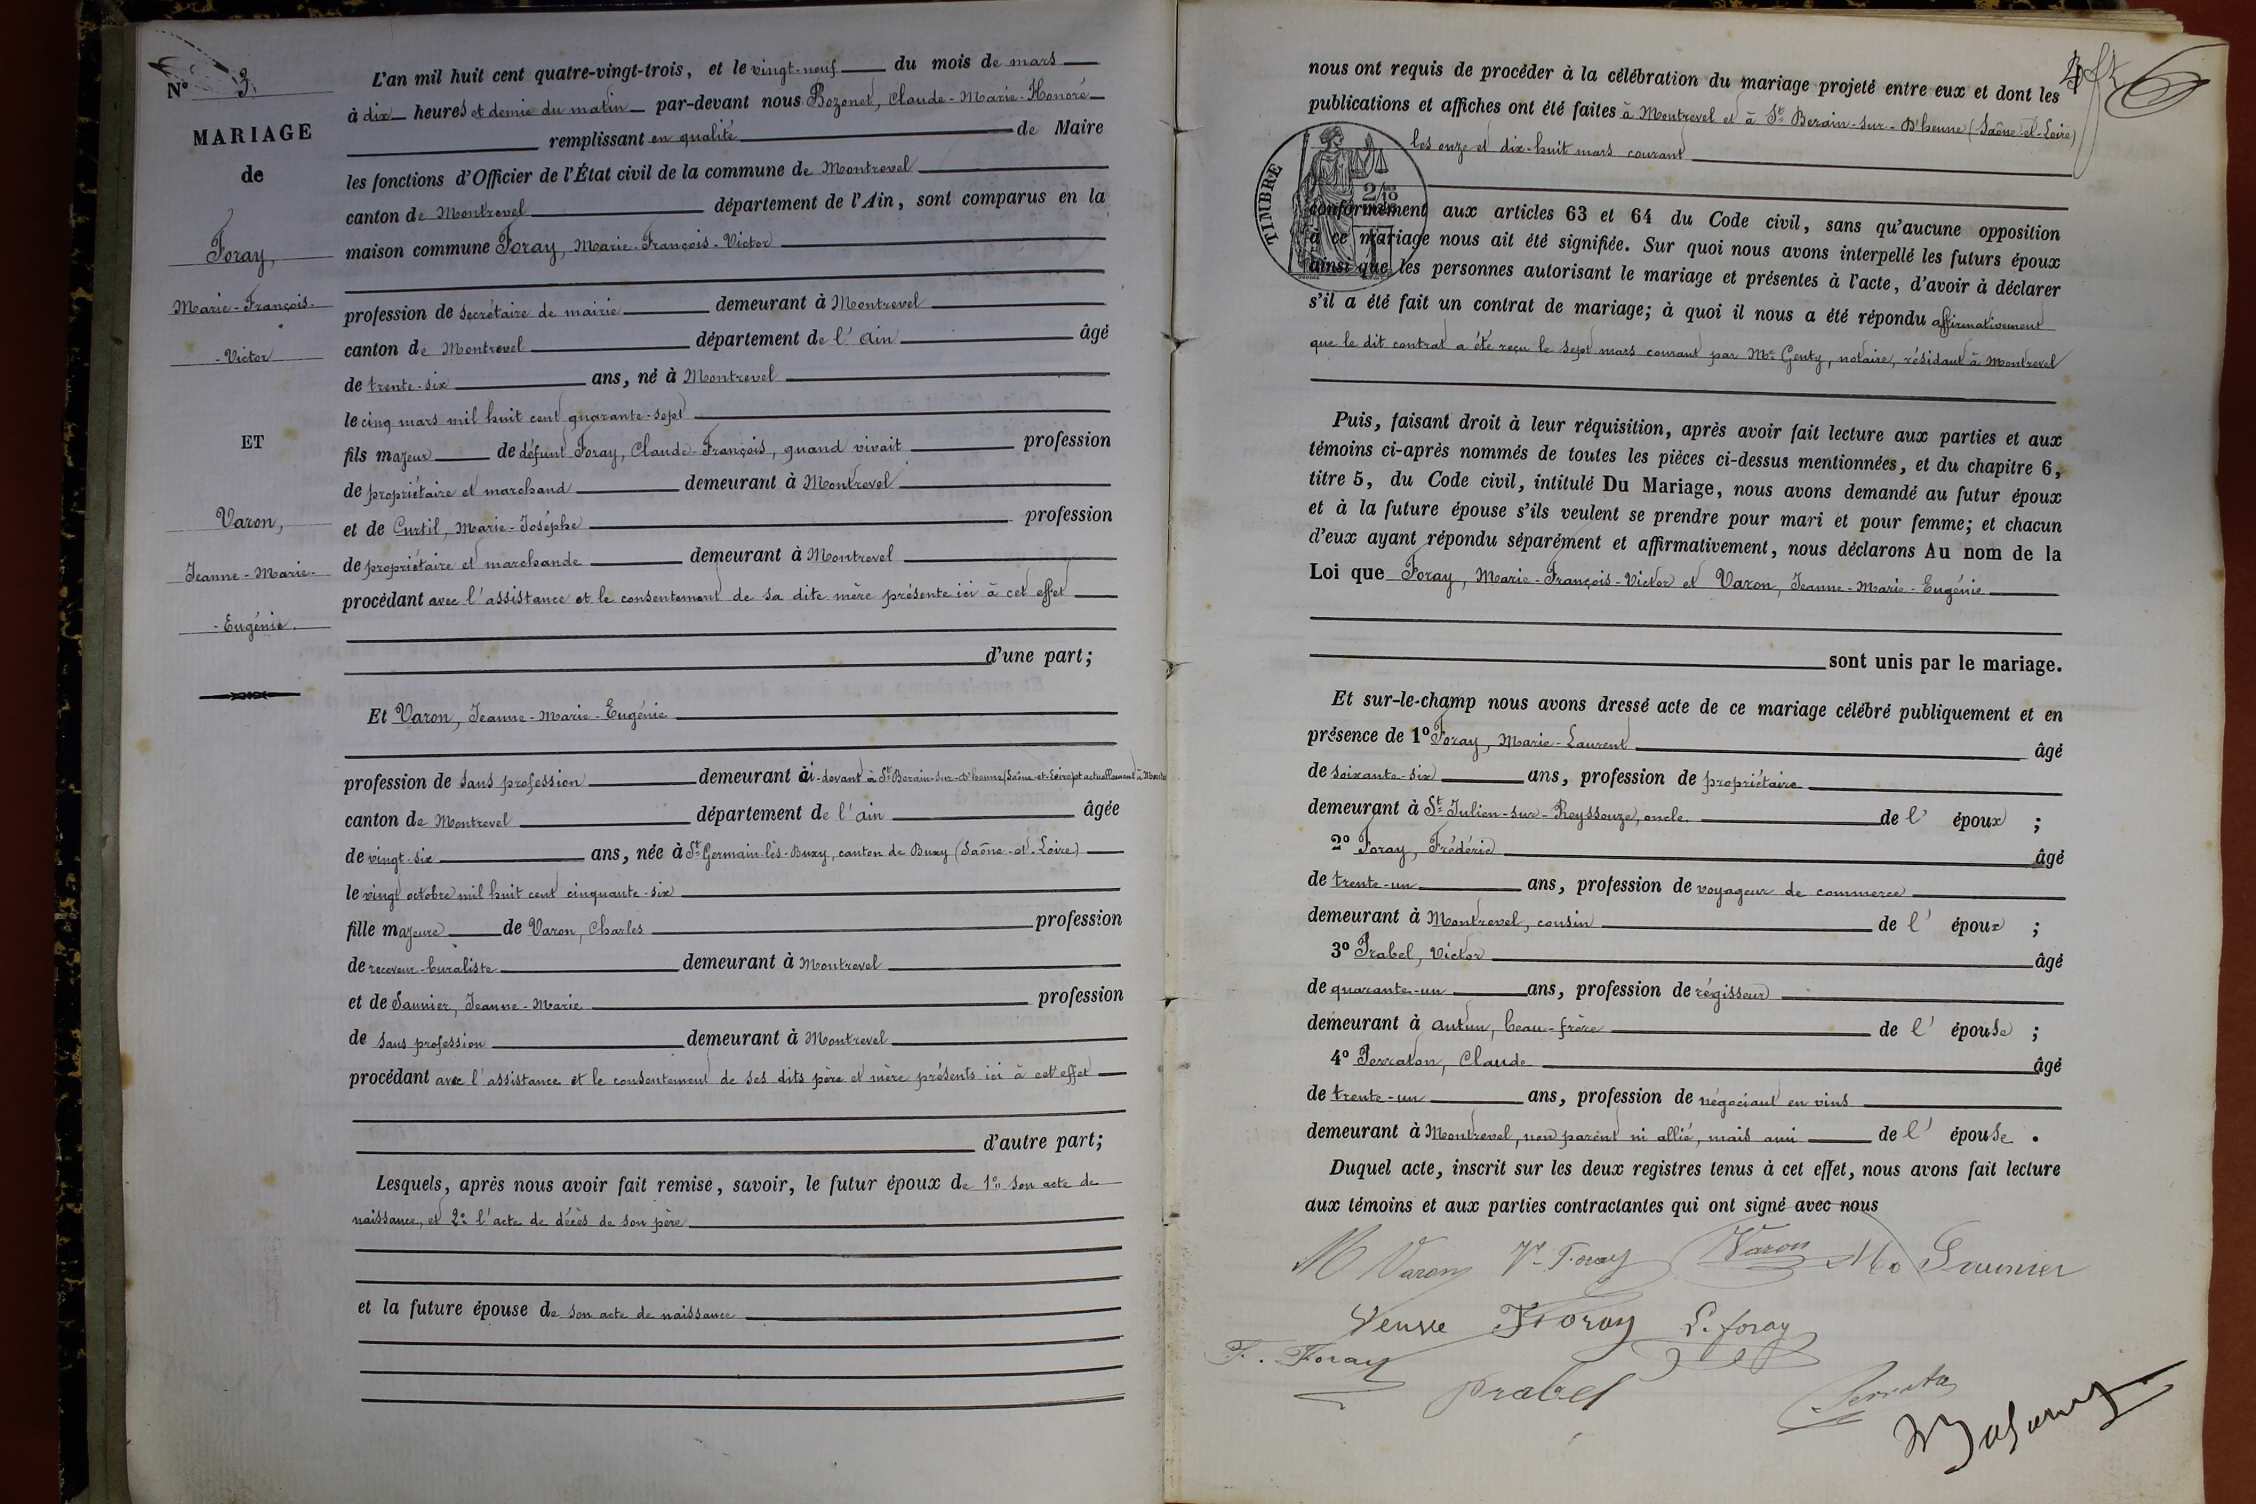 N° 3.
MARIAGE
de
Foray,
Marie-François-
-Victor
ET
Varon,
Jeanne-Marie-
-Eugénie.
L'an mil huit cent quatre-vingt-trois, et le vingt-neuf du mois de mars
à dix heures et demie du matin par-devant nous Bozonet, Claude-Marie-Honoré
remplissant en qualité de Maire
les fonctions d'Officier de l'État civil de la commune de Montrevel
canton de Montrevel département de l'Ain, sont comparus en la
maison commune Foray, Marie-François-Victor
profession de secrétaire de mairie demeurant à Montrevel
canton de Montrevel département de l'Ain âgé
de trente-six ans, né à Montrevel
le cinq mars mil huit cent quarante-sept
fils majeur de défunt Foray, Claude-François, quand vivait profession
de propriétaire et marchand demeurant à Montrevel
et de Curtil, Marie-Josèphe profession
de propriétaire et marchande demeurant à Montrevel
procédant avec l'assistance et le consentement de sa dite mère présente ici à cet effet
d'une part;
Et Varon, Jeanne-Marie-Eugénie
profession de sans profession demeurant ci-devant à St Berain-sur-D'heune (Saône-et-Loire) et actuellement à
canton de Montrevel département de l'ain âgée
de vingt-six ans, née à St Germain-lès-Buxy, canton de Buxy (Saône-et-Loire)
le vingt octobre mil huit cent cinquante-six
fille majeure de Varon, Charles profession
de receveur-buraliste demeurant à Montrevel
et de Saunier, Jeanne-Marie profession
de sans profession demeurant à Montrevel
procédant avec l'assistance et le consentement de ses dits père et mère présents ici à cet effet
d'autre part;
Lesquels, après nous avoir fait remise, savoir, le futur époux de 1° son acte de
naissance, et 2° l'acte de décès de son père
et la future épouse de son acte de naissance
nous ont requis de procéder à la célébration du mariage projeté entre eux et dont les
publications et affiches ont été faites à Montrevel et à St Berain-sur-D'heune (Saône-et-Loire)
les onze et dix-huit mars courant
TIMBRE
conformément aux articles 63 et 64 du Code civil, sans qu'aucune opposition
à ce mariage nous ait été signifiée. Sur quoi nous avons interpellé les futurs époux
ainsi que les personnes autorisant le mariage et présentes à l'acte, d'avoir à déclarer
s'il a été fait un contrat de mariage; à quoi il nous a été répondu affirmativement
que le dit contrat a été reçu le sept mars courant par Me Genty, notaire, résidant à Montrevel
Puis, faisant droit à leur réquisition, après avoir fait lecture aux parties et aux
témoins ci-après nommés de toutes les pièces ci-dessus mentionnées, et du chapitre 6,
titre 5, du Code civil, intitulé Du Mariage, nous avons demandé au futur époux
et à la future épouse s'ils veulent se prendre pour mari et pour femme; et chacun
d'eux ayant répondu séparément et affirmativement, nous déclarons Au nom de la
Loi que Foray, Marie-François-Victor et Varon, Jeanne-Marie-Eugénie
sont unis par le mariage.
Et sur-le-champ nous avons dressé acte de ce mariage célébré publiquement et en
présence de 1° Foray, Marie-Laurent âgé
de soixante-six ans, profession de propriétaire
demeurant à St Julien-sur-Reyssouze, oncle de l'époux ;
2° Foray, Frédéric âgé
de trente-un ans, profession de voyageur de commerce
demeurant à Montrevel, cousin de l'époux ;
3° Prabel, Victor âgé
de quarante-un ans, profession de régisseur
demeurant à autun, beau-frère de l'épouse ;
4° Perraton, Claude âgé
de trente-un ans, profession de négociant en vins
demeurant à Montrevel, non parent ni allié, mais ami de l'épouse .
Duquel acte, inscrit sur les deux registres tenus à cet effet, nous avons fait lecture
aux témoins et aux parties contractantes qui ont signé avec nous
M Varon Vr Foray Varon Saunier
Veuve Foray L. foray
F. Foray prabel